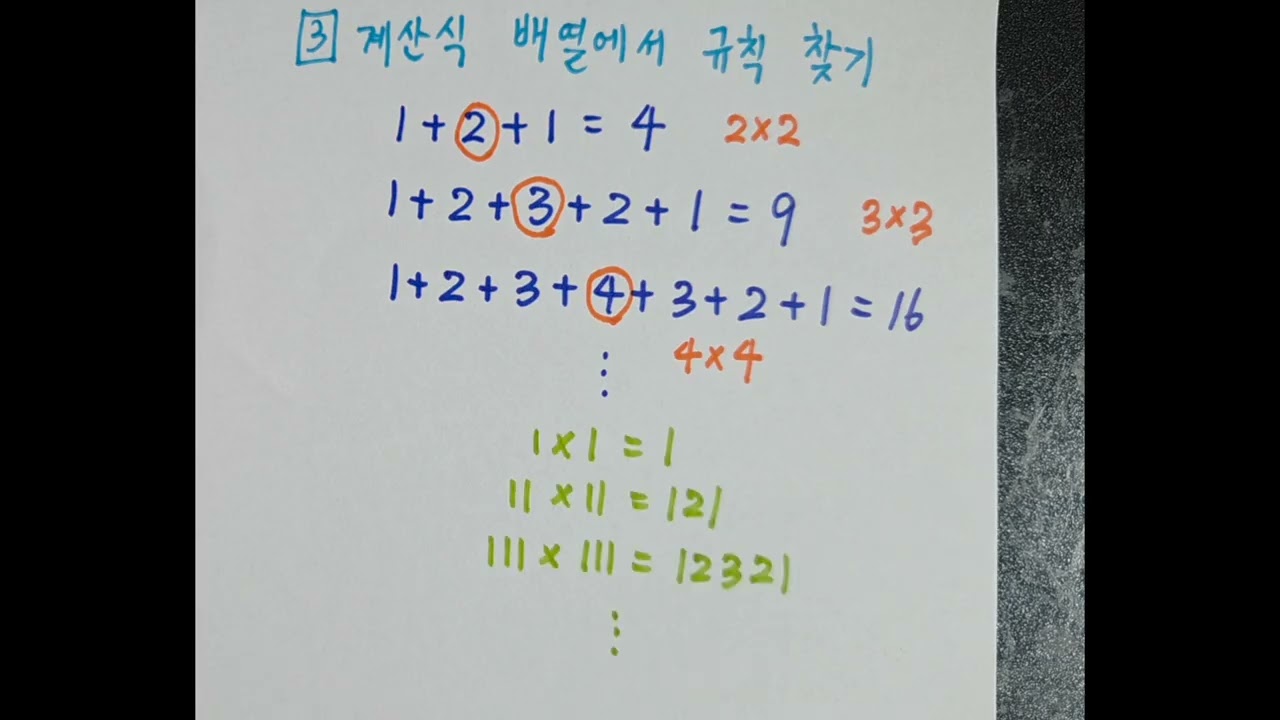 3 계산식 배열에서 규칙 찾기
1+2+1=4 2×2
1+2+3+2+1=9 3×3
1+2+3+4+3+2+1=16
4×4
⋮
1×1=1
11×11=121
111×111=12321
⋮